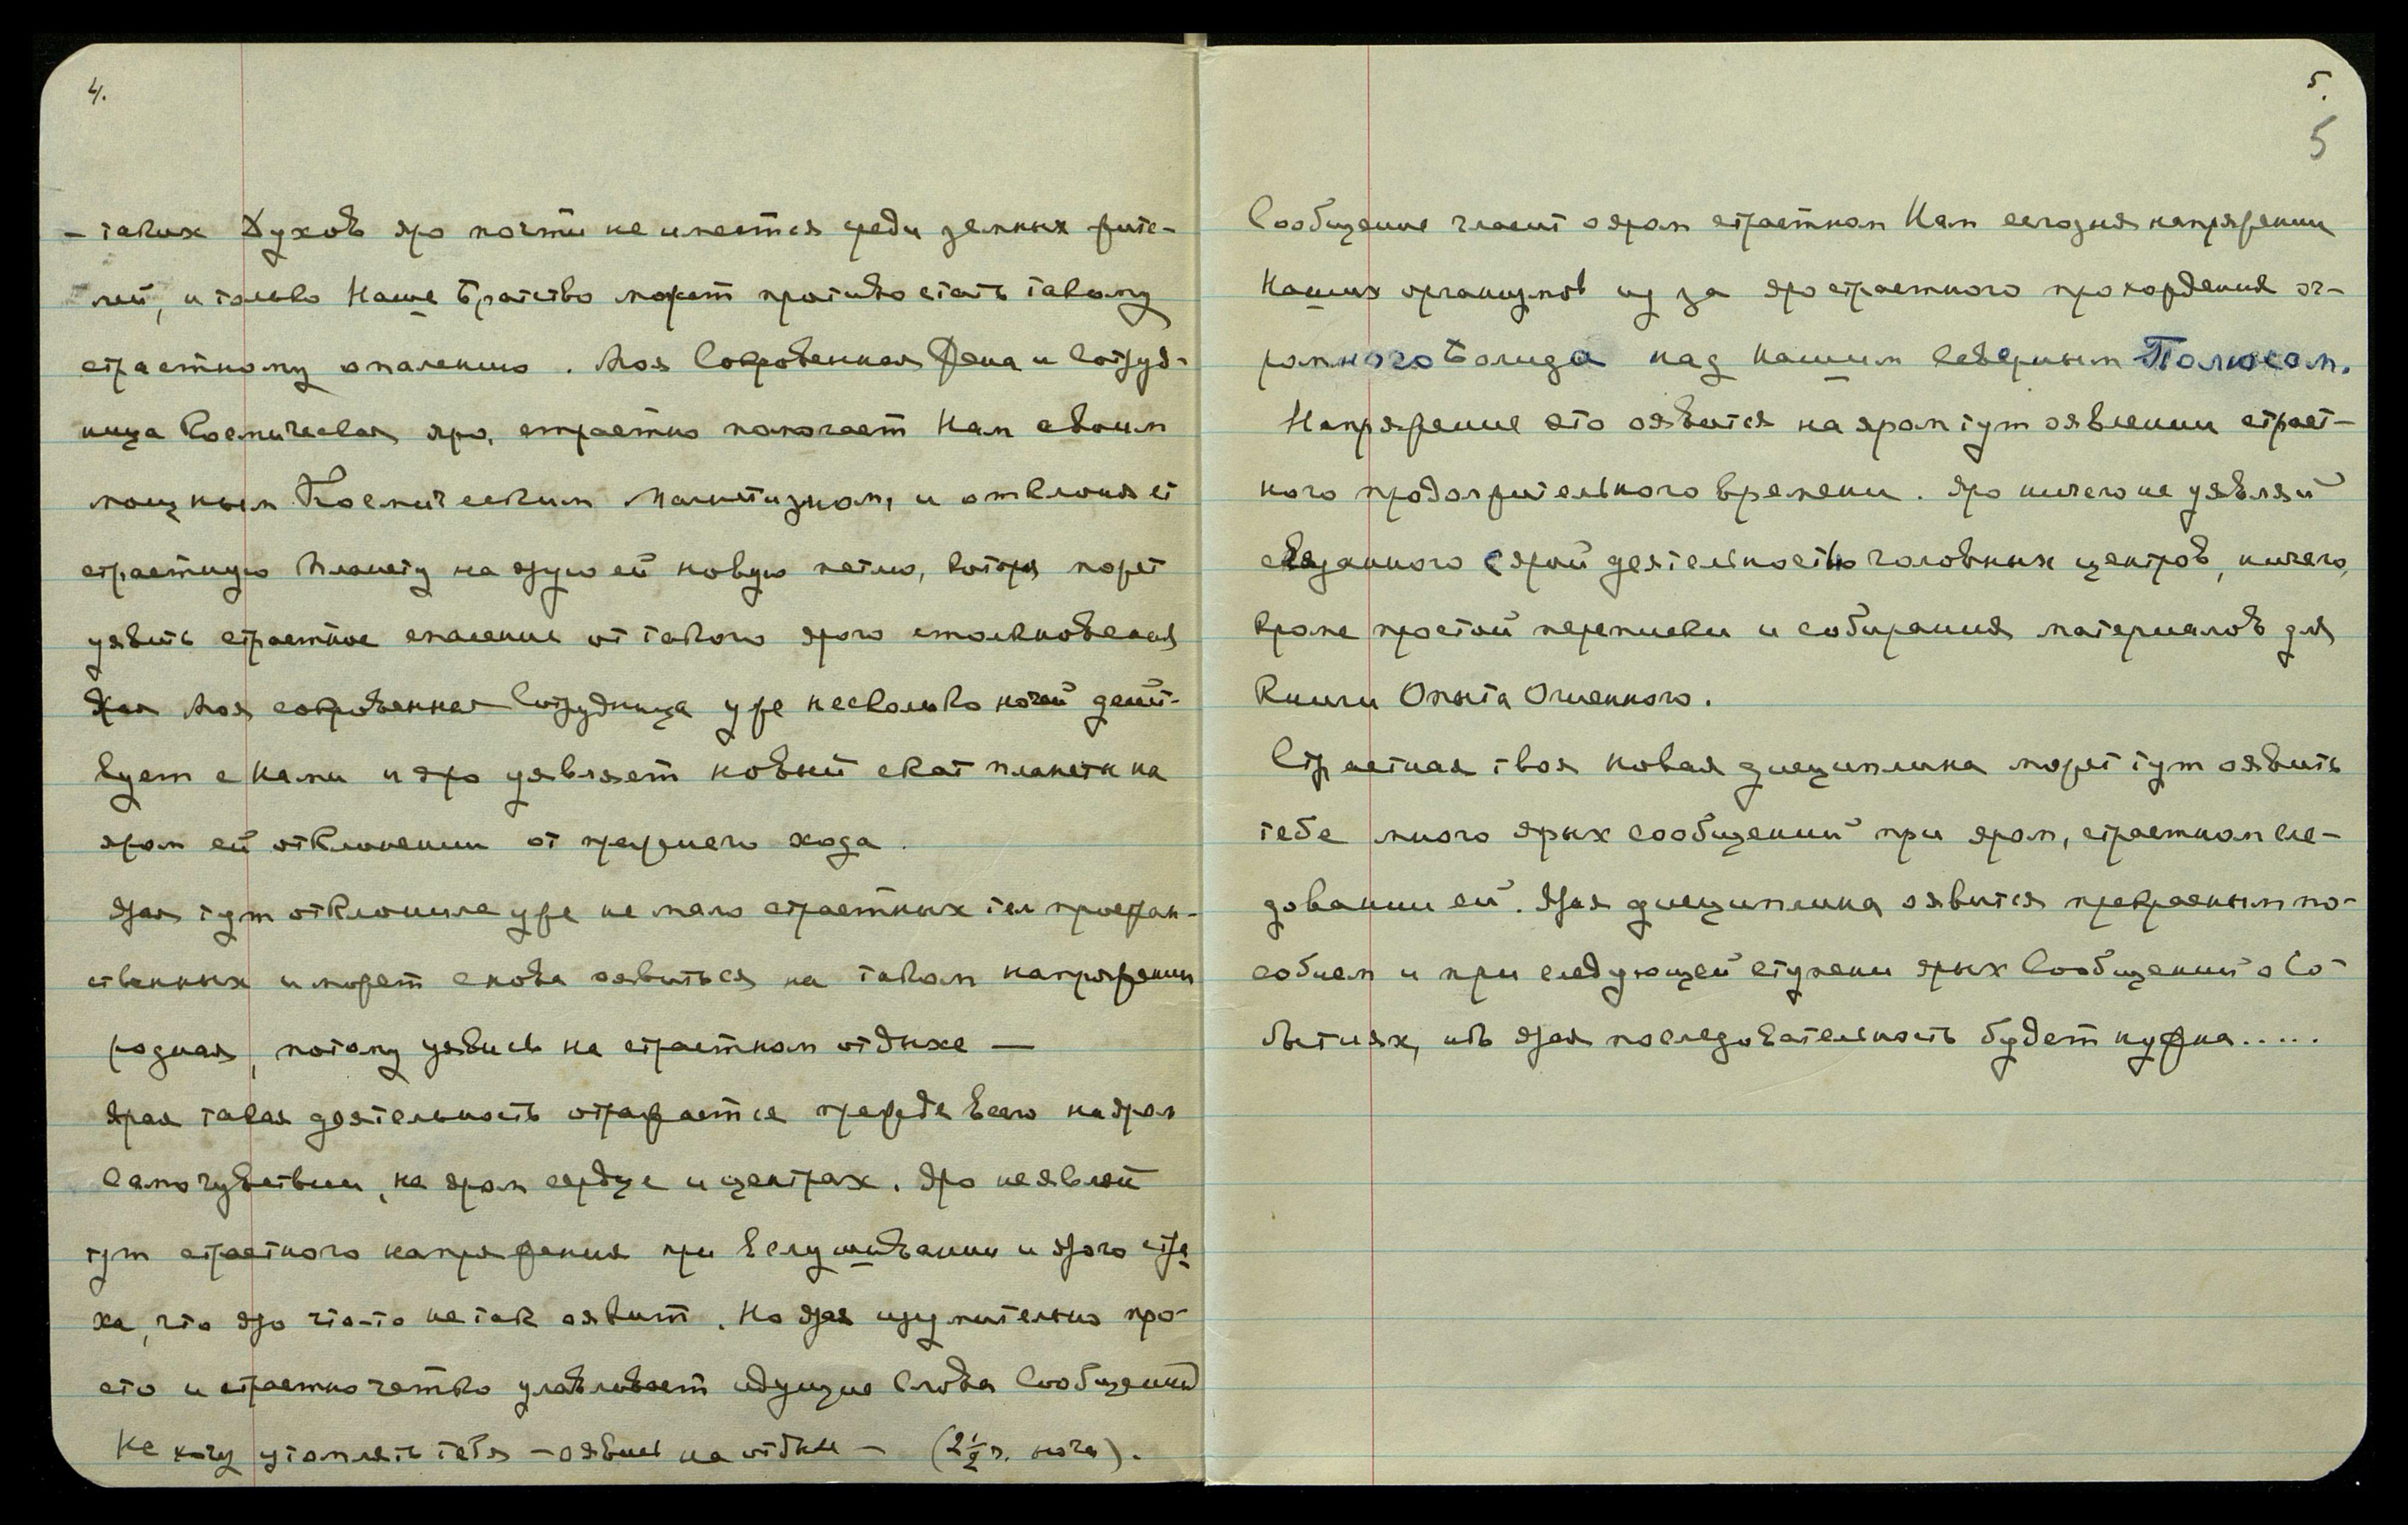 4.
- таких Духов яро почти не имеется среди земных жите-
лей, и только Наше Братство может противостать такому
страстному опалению. Моя Сокровенная Жена и Сотруд-
ница Космическая, яро, страстно помогает Нам своим
мощным Космическим Магнитизмом, и отклоняет
страстную Планету на ярую ей новую петлю, которая может
уявить страстное спасение от такого ярого столкновения
Моя сокровенная Сотрудница уже несколько ночей дейст-
вует с Нами и яро уявляет новый скат планеты на
яром ей отклонении от прежнего хода.
Ярая тут отклонила уже не мало страстных тел простран-
ственных и может снова оявиться на таком напряжении
родная, потому уявись на страстном отдыхе —
Ярая такая деятельность отражается прежде всего на яром
Самочувствии, на яром сердце и центрах. Яро не являй
тут страстного напряжения при вслушивании и ярого стра
ха, что яро что-то не так оявит. Но ярая изумительно про-
сто и страстно четко улавливает идущие Слова Сообщений
Не хочу утомлять тебя - оявись на отдыхе - (2½ ч. ночи).
5.
5
Сообщение гласит о яром страстном Нам сегодня напряжении
Наших организмов из за яро страстного прохождения ог-
ромного Болида над нашим Северным Полюсом.
Напряжение это оявится на яром тут оявлении страст-
ного продолжительного времени. Яро ничего не уявляй
связанного с ярой деятельностью головных центров, ничего,
кроме простой переписки и собирания материалов для
Книги Опыта Огненного.
Страстная твоя новая дисциплина может тут оявить
тебе много ярых сообщений при яром, страстном сле-
довании ей. Ярая дисциплина оявится прекрасным по-
собием и при следующей ступени ярых Сообщений о Со-
бытиях, ибо ярая последовательность будет нужна.....